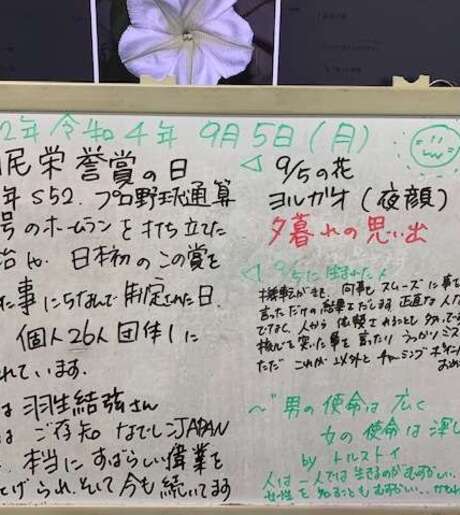 2年 令和4年 9月5日(月)
民栄誉賞の日
年 S52. プロ野球通算
号のホームランを打ち立てた
治や、日本初のこの賞を
た事にちなんで制定された日.
個人26人 団体1に
れています.
は 羽生結弦さん
は ご存知 なでしこJAPAN
本当にすばらしい偉業を
とげられ、そして今も続いてます
9/5の花
ヨルガオ(夜顔)
夕暮れの思い出
9/5に生まれた人
機転がきき、何事もスムーズに事を
言っただけの結果をだします 正直な人
でなく、人から 依頼されることも 多い
核心を突いた事を言ったり うっかりミス
ただ これが 以外と チャーミングポイ
男の使命は 広く
女の使命は 深
by トルストイ
人は一人では生きるのがむずかしい.
女性を 知ることも むずかしい..